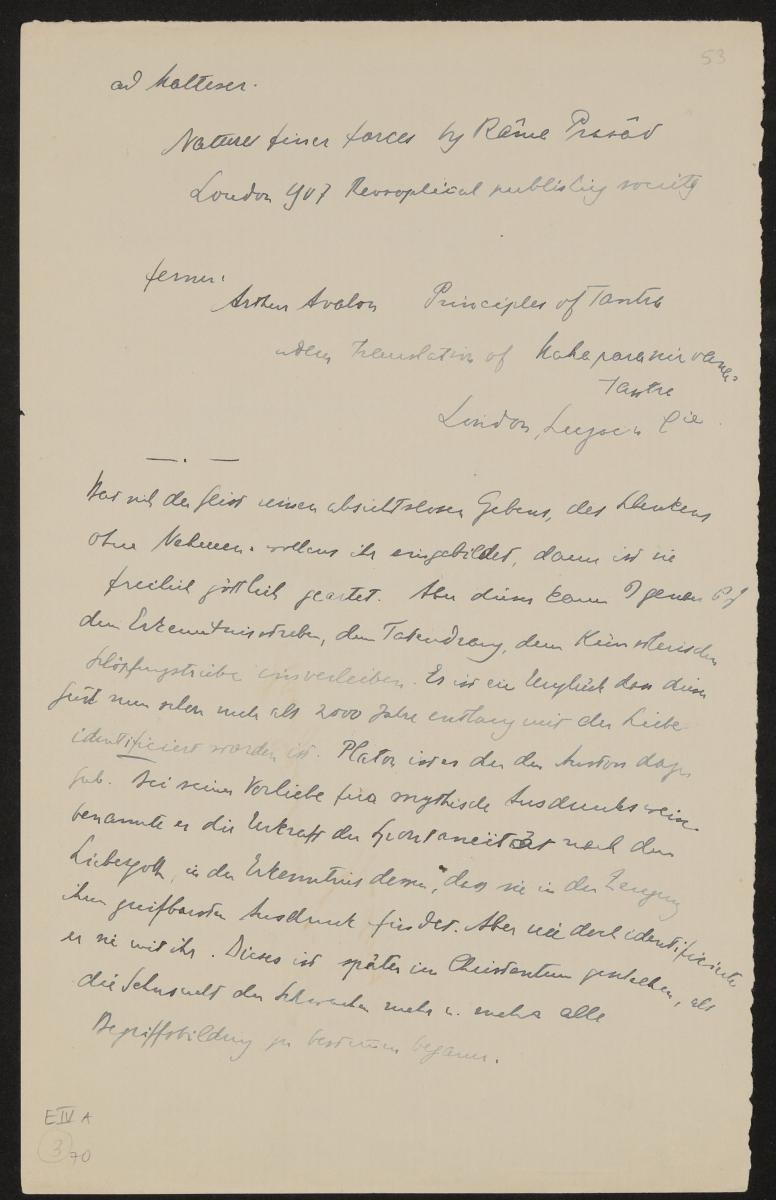 53
ad Malteser.
Natures finer forces by Râma Prasâd
London 1907 Theosophical publishing society
ferner:
Arthur Avalon Principles of Tantra
Translation of Mahaparanirvana-
Tantra
London, Luzac u Cie.
— . —
Hat sich der Geist reinen absichtslosen Gebens, des Schenkens
ohne Nehmen-wollens ihr eingebildet, dann ist sie
freilich göttlich geartet. Aber dieser kann genau
dem Erkenntnisstreben, dem Tatendrang, dem Künstlerischen
Schöpfungstriebe einverleiben. Es ist ein Unglück dass dieser
Geist nun schon mehr als 2000 Jahre entlang mit der Liebe
identificiert worden ist. Platon ist es der den Anstoss dazu
gab. Bei seiner Vorliebe für mythische Ausdrucksweise
benannte er die Urkraft der Spontaneität nach dem
Liebesgott, in der Erkenntnis dessen, dass sie in der Zeugung
ihren greifbarsten Ausdruck findet. Aber nie doch identificierte
er sie mit ihr. Dieses ist später im Christentum geschehen, als
die Sehnsucht der Schwachen mehr u. mehr alle
Begriffsbildung zu bestimmen begann.
E IV A
3 70